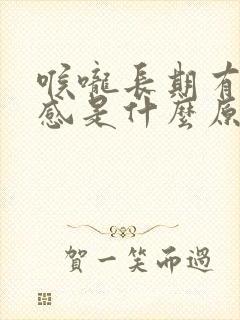 喉嚨長期有
感是什麼原
賀一笑而過